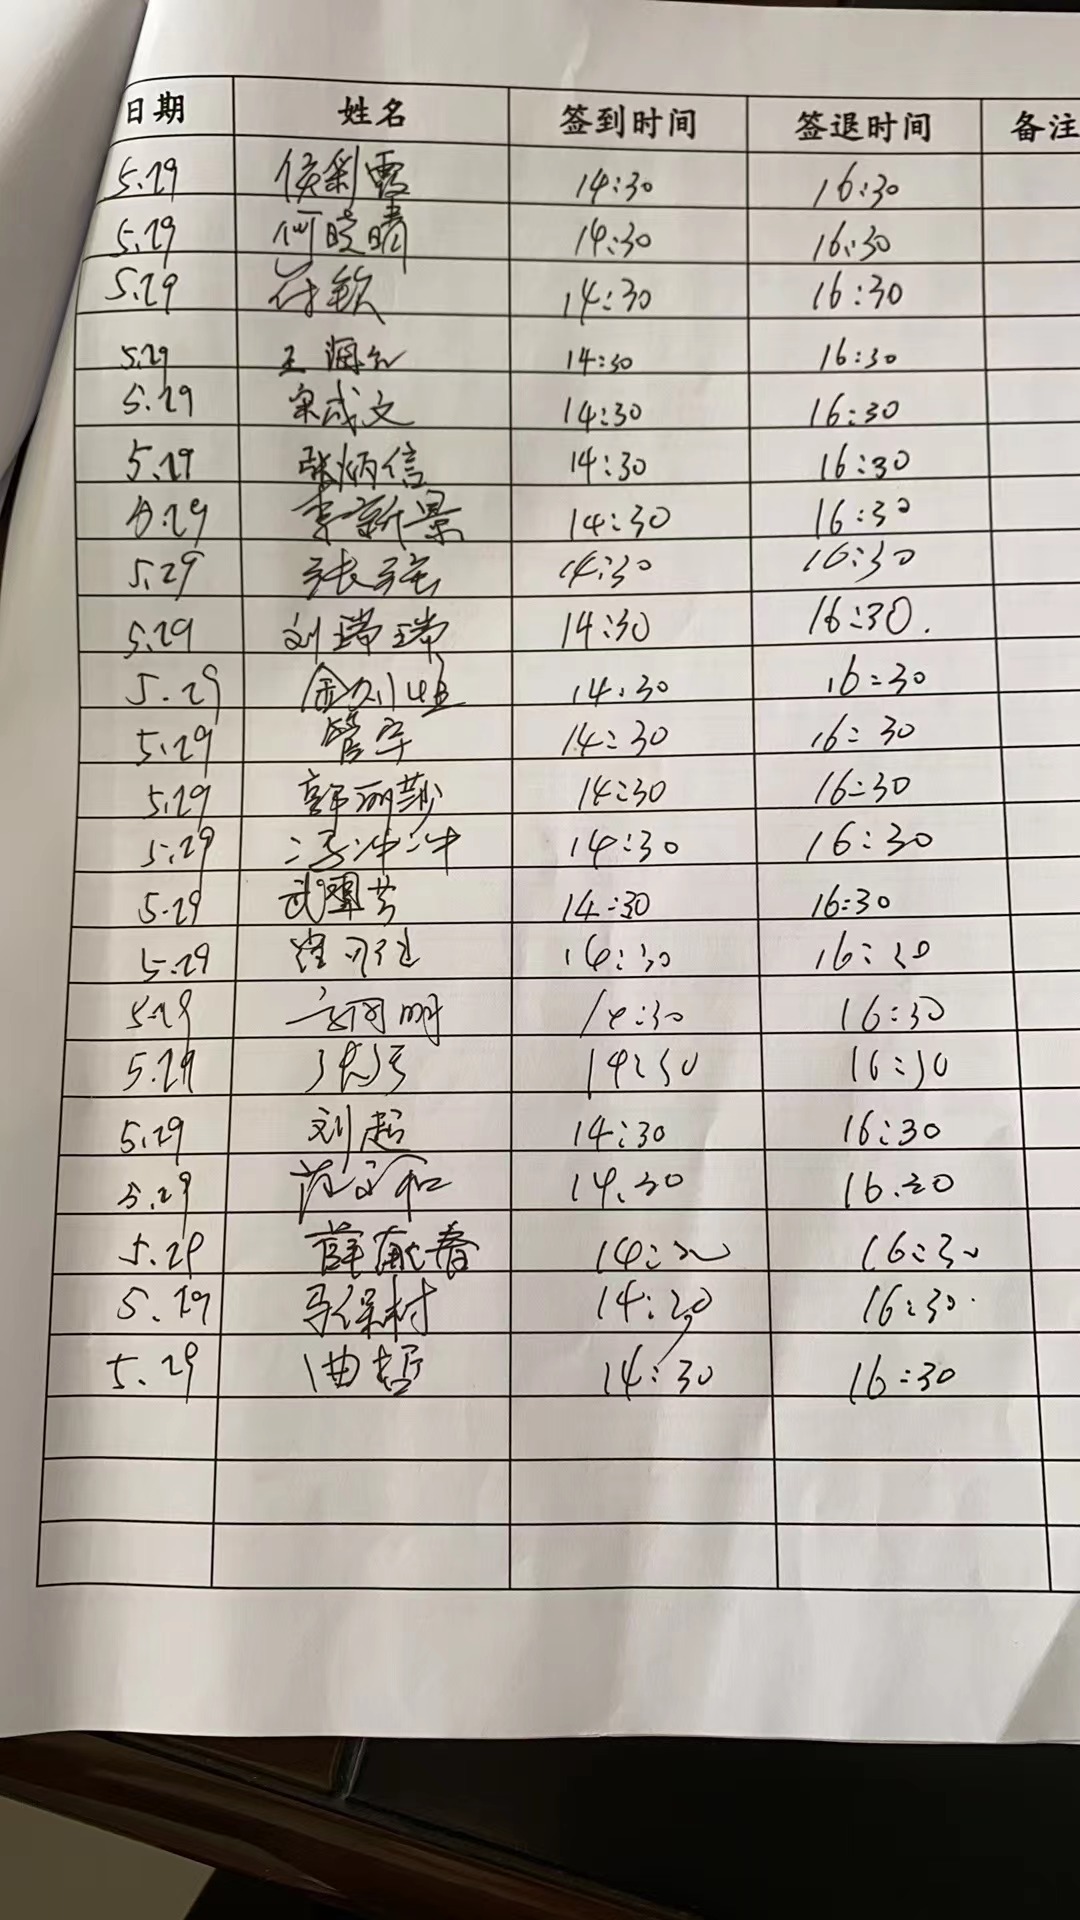 日期 姓名 签到时间 签退时间 备注
5.29 侯彩霞 14:30 16:30
5.29 何晓晴 14:30 16:30
5.29 付钦 14:30 16:30
5.29 王海 14:30 16:30
5.29 宋成文 14:30 16:30
5.29 张炳信 14:30 16:30
5.29 李新景 14:30 16:30
5.29 张强 14:30 16:30
5.29 刘瑞瑞 14:30 16:30.
5.29 14:30 16:30
5.29 管宇 14:30 16:30
5.29 郭丽莎 14:30 16:30
5.29 冯冲冲 14:30 16:30
5.29 武 14:30 16:30
5.29 14:30 16:30
5.29 明 14:30 16:30
5.29 14:30 16:30
5.29 刘超 14:30 16:30
5.29 范 和 14.30 16.30
5.29 薛 春 14:30 16:30
5.29 马保村 14:30 16:30.
5.29 曲哲 14:30 16:30